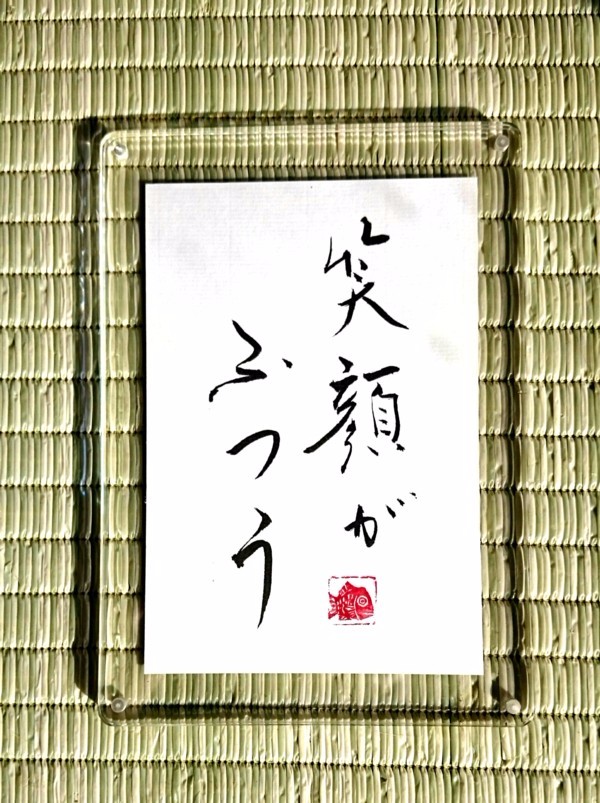 笑顔が
ふつう